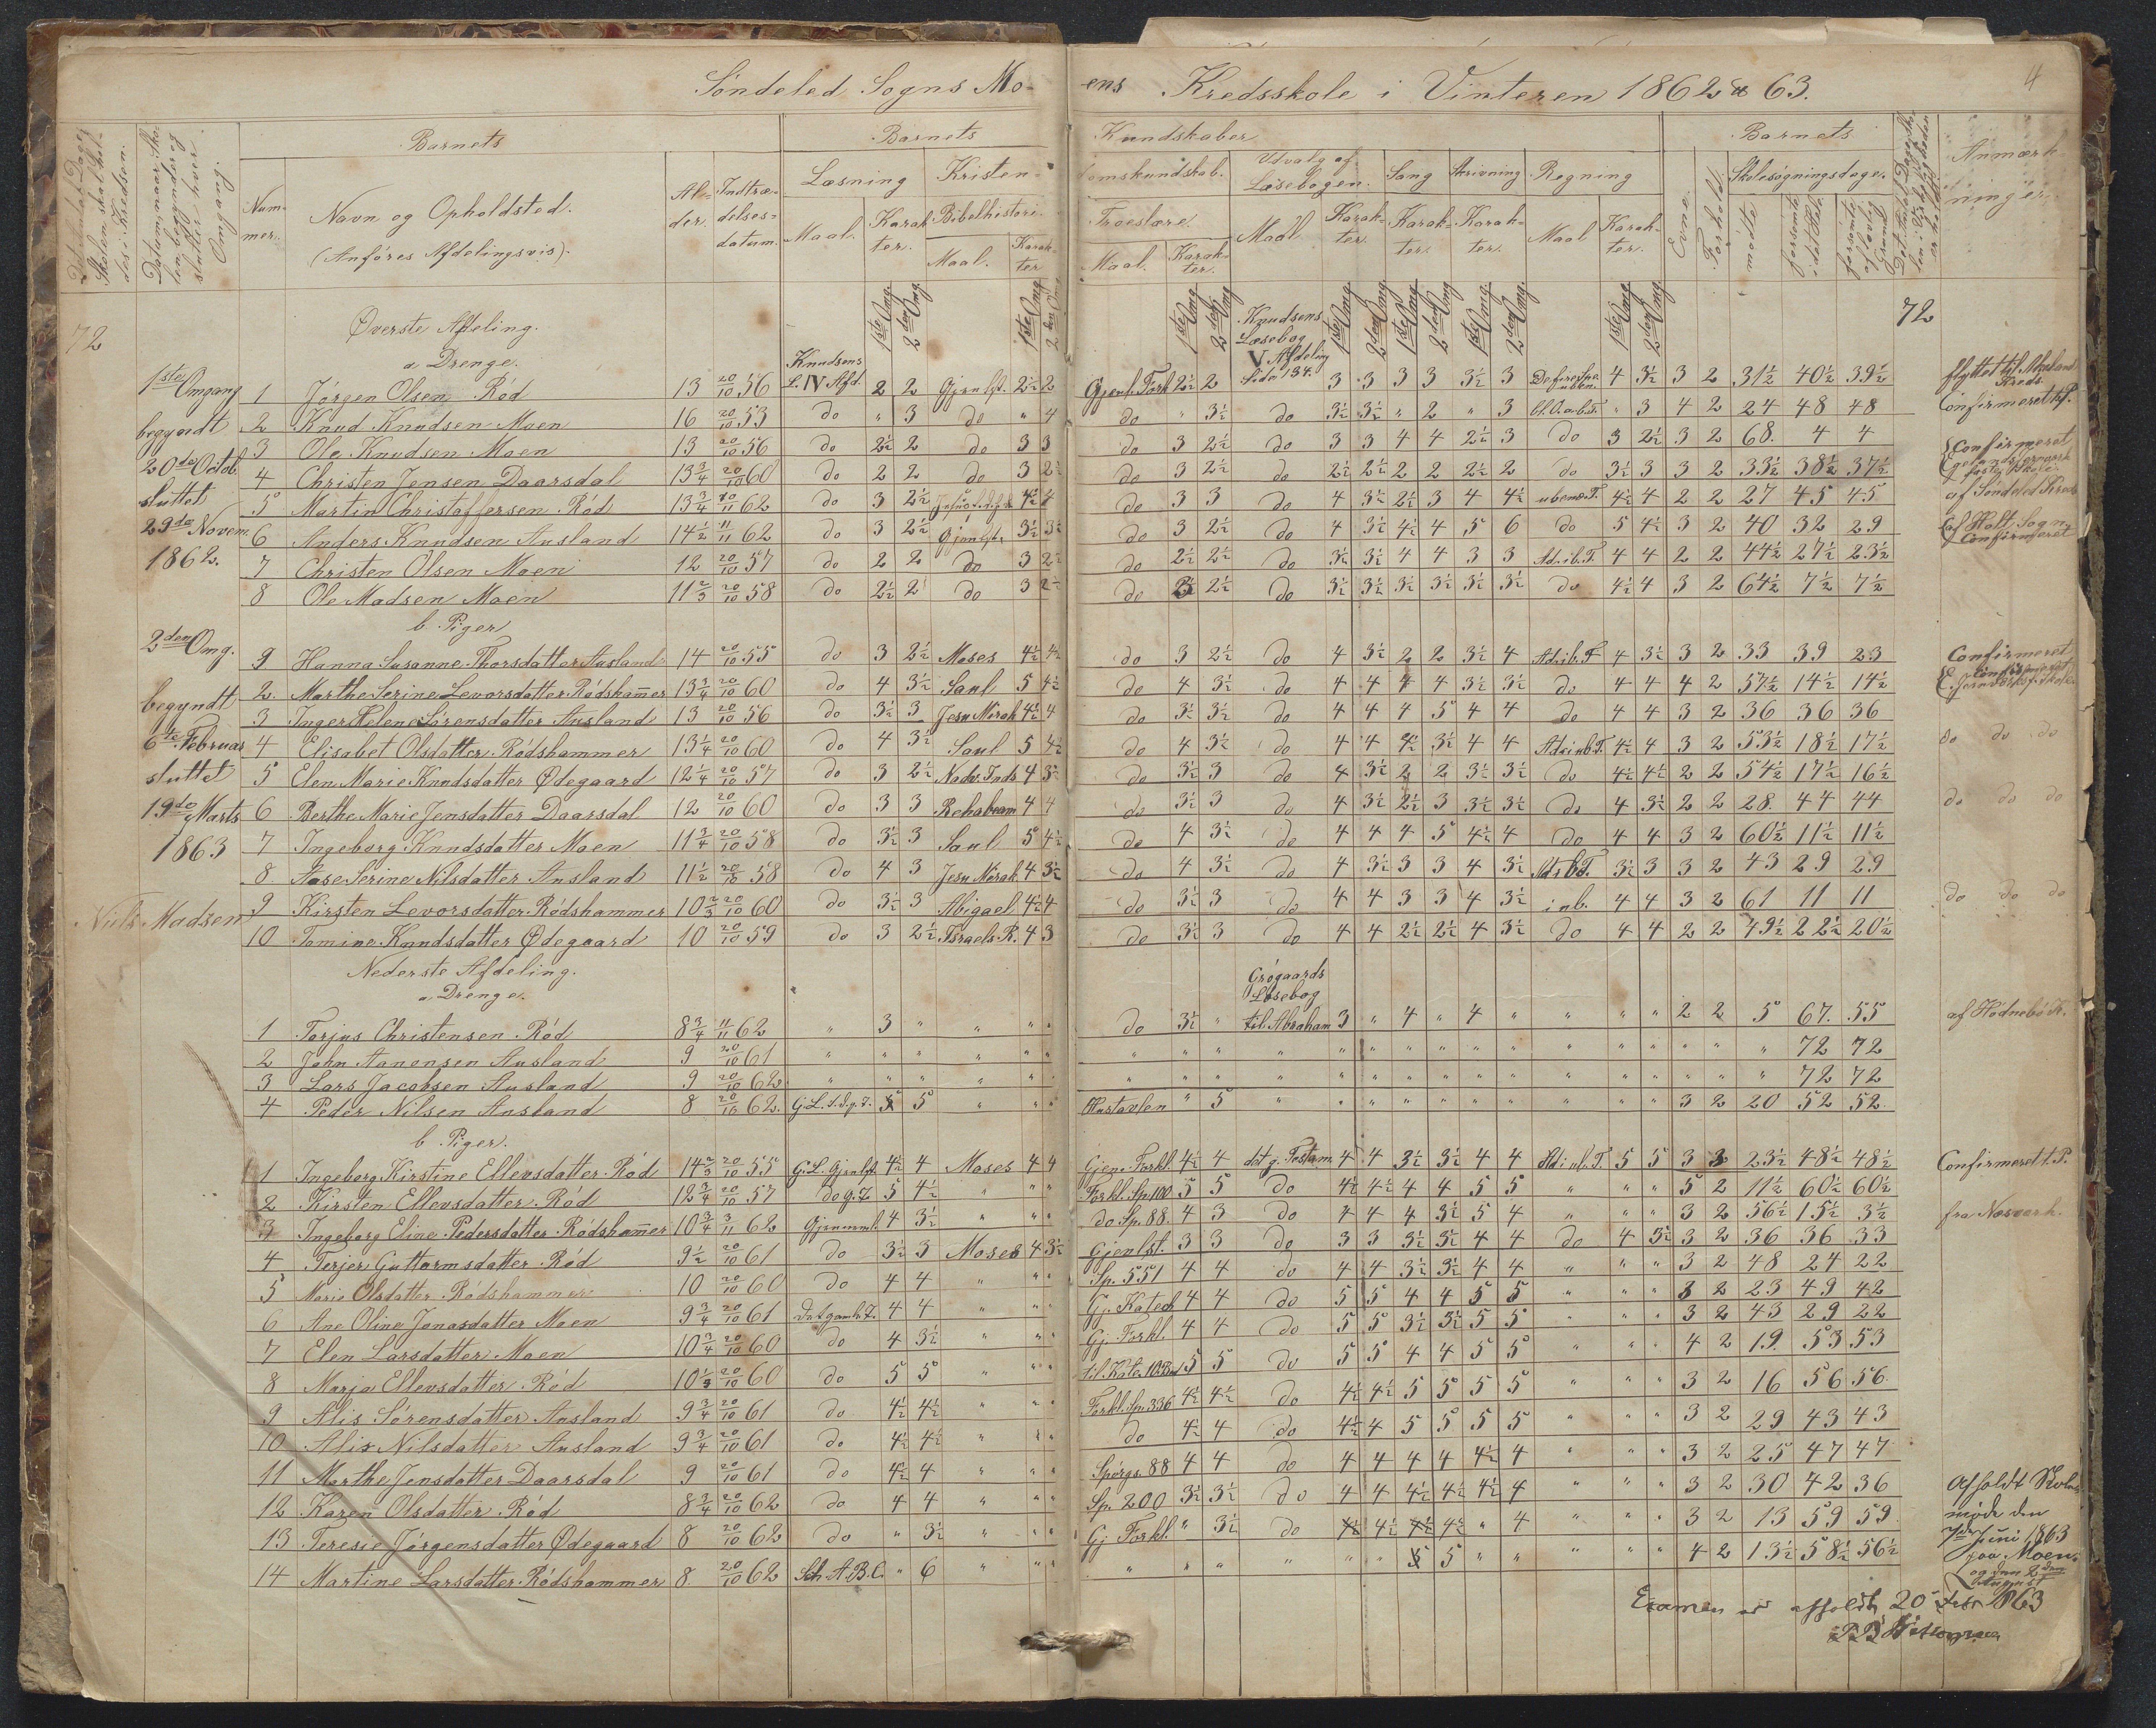 Søndeled Sogns Moens Kredsskole i Vinteren 1862 & 63.
4
Barnets Barnets Kundskaber Barnets
Det Antal Dage Skolen skal holdes i Kredsen.
Datum, naar Skolen begynder og slutter hver Omgang.
Nummer. Navn og Opholdsted. (Anføres Afdelingsvis). Alder. Indtrædelsesdatum.
Læsning Kristendomskundskab. Udvalg af Læsebogen. Sang Skrivning Regning Evne. Forhold. Skolesøgningsdage. Anmærkninger.
Maal. Karakter. Bibelhistorie. Troeslære. Maal Karakter. Karakter. Karakter. Maal Karakter. mødte forsømte i det Hele forsømte af lovlig Grund
Maal. Karakter Maal. Karakter.
1ste Omg. 2den Omg. 1ste Omg. 2den Omg. 1ste Omg. 2den Omg. 1ste Omg. 2den Omg. 1ste Omg. 2den Omg. 1ste Omg. 2den Omg. 1ste Omg. 2den Omg.
72 Øverste Afdeling. Knudsens Læsebog V Afdeling Side 134. 72
a Drenge. Knudsens L. IV Afd.
1ste Omgang begyndt 20de Octob. sluttet 29de Novem. 1862.
1 Jørgen Olsen Rød 13 20/10 56 2 2 2½ 2 2½ 2 3 3 3 3 3½ 3 4 3½ 3 2 31½ 40½ 39½
2 Knud Knudsen Moen 16 20/10 53 do " 3 do " 4 do " 3½ do 3½ 3½ " 2 " 3 " 3 4 2 24 48 48
3 Ole Knudsen Moen 13 20/10 56 do 2½ 2 do 3 3 do 3 2½ do 3 3 4 4 2½ 3 do 3 2½ 3 2 68. 4 4 Confirmeret
4 Christen Jensen Daarsdal 13¾ 20/10 60 do 2 2 do 3 2½ do 3 2½ do 2½ 2½ 2 2 2½ 2 do 3½ 3 3 2 33½ 38½ 37½
5 Martin Christoffersen Rød 13¾ 62 do 3 2½ 4½ 4 do 3 3 do 4 3½ 2½ 3 4 4½ 4½ 4 2 2 27 45 45 af Søndeled Kreds
6 Anders Knudsen Ausland 14½ 11/11 62 do 3 2½ 3½ 3½ do 3 2½ do 4 3½ 4½ 4 5 6 do 5 4½ 3 2 40 32 29 af Holt Sogn. Confirmeret
7 Christen Olsen Moen 12 20/10 57 do 2 2 do 3 2½ do 2½ 2½ do 3½ 3½ 4 4 3 3 Ad. i b. T. 4 4 2 2 44½ 27½ 23½
8 Ole Madsen Moen 11⅔ 20/10 58 do 2½ 2 do 3 2½ do 2½ do 3½ 3½ 3½ 3½ 3½ 3½ do 4½ 4 3 2 64½ 7½ 7½
b. Piger
2den Omg. begyndt 6te Februar sluttet 19de Marts 1863
9 Hanna Susanne Thorsdatter Ausland 14 20/10 55 do 3 2½ Moses 4½ 4½ do 3 2½ do 4 3½ 2 2 3½ 4 Ad. i b. T. 4 3½ 3 2 33 39 23 Confirmeret
2 Marthe Serine Levorsdatter Rødshammer 13¾ 20/10 60 do 4 3½ Saul 5 4½ do 4 3½ do 4 4 4 4 3½ 3½ do 4 4 4 2 57½ 14½ 14½
3 Inger Helene Sørensdatter Ausland 13 20/10 56 do 3½ 3 Jesu Mirak 4½ 4 do 3½ 3½ do 4 4 4 5 4 4 do 4 4 3 2 36 36 36
4 Elisabet Olsdatter Rødshammer 13¼ 20/10 60 do 4 3½ Saul 5 4½ do 4 3½ do 4 4 4½ 3½ 4 4 4½ 4 3 2 53½ 18½ 17½ do do do
5 Elen Marie Knudsdatter Ødegaard 12¼ 20/10 57 do 3 2½ 4 3½ do 3½ 3 do 4 3½ 2 2 3½ 3½ do 4½ 4½ 2 2 54½ 17½ 16½
6 Berthe Marie Jensdatter Daarsdal 12 20/10 60 do 3 3 Rehabeam 4 4 do 3½ 3 do 4 3½ 2½ 3 3½ 3½ do 4 3½ 2 2 28. 44 44 do do do
7 Ingeborg Knudsdatter Moen 11¾ 20/10 58 do 3½ 3 Saul 5 4½ do 4 3½ do 4 4 4 5 4½ 4 do 4 4 3 2 60½ 11½ 11½
8 Aase Serine Nilsdatter Ausland 11½ 20/10 58 do 4 3 Jesu Mirak 4 3½ do 4 3½ do 4 3½ 3 3 4 3½ 3½ 3 3 2 43 29 29
9 Kirsten Levorsdatter Rødshammer 10⅔ 20/10 60 do 3½ 3 Abigael 4½ 4 do 3½ 3 do 4 4 3 3 4 3½ i nb. 4 4 3 2 61 11 11 do do do
Niels Madsen
10 Tomine Knudsdatter Ødegaard 10 20/10 59 do 3 2½ Israels R. 4 3 do 3½ 3 do 4 4 2½ 2½ 4 3½ do 4 4 2 2 49½ 22½ 20½
Nederste Afdeling. Grøgaards Læsebog
a. Drenge.
1 Torjus Christensen Rød 8¾ 11/11 62 " 3 " " " " do 3½ " til Abraham 3 " 4 " 4 " " " " 2 2 5 67. 55 af Hødnebø K.
2 John Aanonsen Ausland 9 20/10 61 " " " " " " " " " " " " " " " " " " " " " " 72 72
3 Lars Jacobsen Ausland 9 20/10 62 " " " " " " " " " " " " " " " " " " " " " " 72 72
4 Peder Nilsen Ausland 8 20/10 62. 5 " " " Hustavlen " 5 " " " " " " " " " " 3 2 20 52 52.
b. Piger.
1 Ingeborg Kirstine Ellevsdatter Rød 14⅔ 20/10 55 4½ 4 Moses 4 4 Gjen. Forkl. 4½ 4 det g. Testam. 4 4 3½ 3½ 4 4 5 5 3 2 23½ 48½ 48½ Confirmeret t. P.
2 Kirsten Ellevsdatter Rød 12¾ 20/10 57 5 4½ " " " Forkl. Sp. 100 5 5 do 4½ 4½ 4 4 5 5 " " " 5 2 11½ 60½ 60½
3 Ingeborg Eline Pedersdatter Rødshammer 10¾ 3/11 62 4 3½ " " " do Sp. 88. 4 3 do 4 4 4 3½ 5 4 " " " 3 2 56½ 15½ 3½ fra Næsverk.
4 Terjer Guttormsdatter Rød 9½ 20/10 61 do 3½ 3 Moses 4 3½ Gjenlst. 3 3 do 3 3 3½ 3½ 4 4 do 4 3½ 3 2 36 36 33
5 Marie Olsdatter Rødshammer 10 20/10 60 do 4 4 " " " Sp. 551 4 4 do 4 4 3½ 3½ 4 4 " " " 3 2 48 24 22
6 Ane Oline Jonasdatter Moen 9¾ 20/10 61 Det gamle T. 4 4 " " " Gj. Katech 4 4 do 5 5 4 4 5 5 " " " 3 2 23 49 42
7 Elen Larsdatter Moen 10¾ 20/10 60 do 4 3½ " " " Gj. Forkl. 4 4 do 5 5 3½ 3½ 5 5 " " " 3 2 43 29 22
8 Marja Ellevsdatter Rød 10⅓ 20/10 60 do 5 5 " " " 5 5 do 5 5 4 4 5 5 " " " 4 2 19. 53 53
9 Alis Sørensdatter Ausland 9¾ 20/10 61 do 4½ 4½ " " " Forkl. Sp. 336 4½ 4½ do 4½ 4½ 5 5 5 5 " " " 3 2 16 56 56.
10 Alis Nilsdatter Ausland 9¾ 20/10 61 do 4½ 4½ " " " do 4½ 4 do 4½ 4 5 5 5 5 " " " 3 2 29 43 43
11 Marthe Jensdatter Daarsdal 9 20/10 61 do 4½ 4 " " " Spörgs. 88 4 4 do 4 4 4 4 4½ 4 " " " 3 2 25 47 47
12 Karen Olsdatter Rød 8¾ 20/10 62 do 4 4 " " " Sp. 200 3½ 3½ do 4 4 4½ 4½ 4½ 4 " " " 3 2 30 42 36
13 Teresie Jørgensdatter Ødegaard 8 20/10 62 do " 3½ " " " Gj Forkl. " 3½ do 4½ 4½ 4½ 4½ " 4 " " " 3 2 13 59 59.
14 Martine Larsdatter Rødshammer 8 20/10 62 Sch. A.B.C. " 6 " " " " " " " " " 5 5 " " " " " 4 2 13½ 58½ 56½
Afholdt Skolemøde den
7de Juni 1863
paa Moen.
og den 2den
August
Examen er afholdt 20 Febr 1863